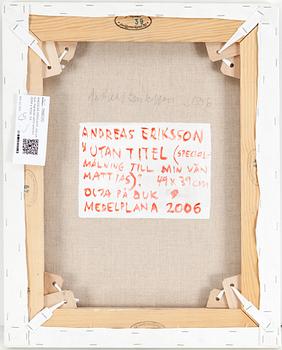 36
Andreas Eriksson 2006
ANDREAS ERIKSSON
"UTAN TITEL (SPECIAL-
MÅLNING TILL MIN VÄN
MATTIAS)". 49 X 39 CM
OLJA PÅ DUK
MEDELPLANA 2006
39